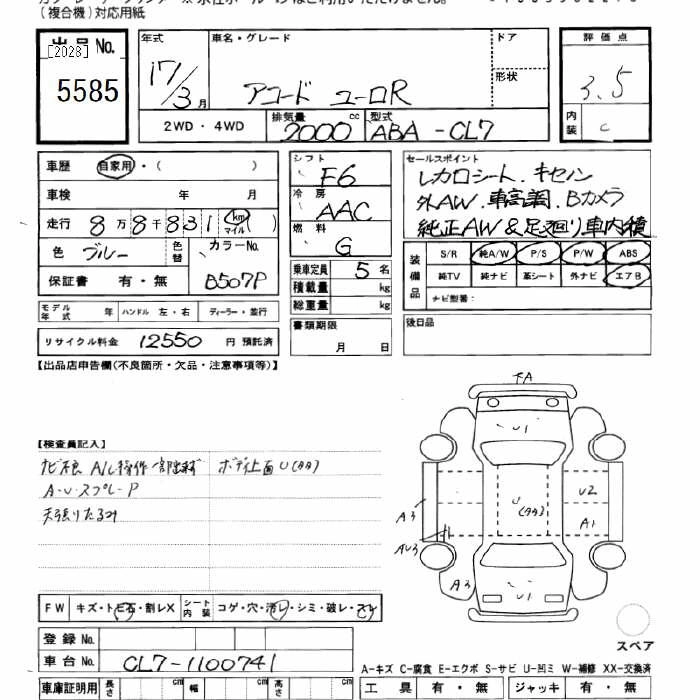 (複合機)対応用紙
出品No.
[2028]
5585
年式 車名・グレード ドア 評価点
17/3月 アコード ユーロR 形状 3.5
2WD・4WD 排気量 2000cc 型式 ABA-CL7 内装 C
車歴 自家用・( )
車検 年 月
走行 8万8千831 km マイル ( )
色 ブルー 色替 カラーNo.
保証書 有・無 B507P
モデル年式 年 ハンドル 左・右 ディーラー・並行
リサイクル料金 12550 円 預託済
シフト F6
冷房 AAC
燃料 G
乗車定員 5名
積載量 kg
総重量 kg
書類期限
月 日
セールスポイント
レカロシート.キセノン
外AW.車高調.Bカメラ
純正AW&足廻り車内積
装備品 S/R 純A/W P/S P/W ABS
純TV 純ナビ 革シート 外ナビ エアB
ナビ型番:
後日品
【出品店申告欄(不良箇所・欠品・注意事項等)】
【検査員記入】
ボディ上面U(タタ)
A-U-スプレーP
天張りたるみ
FA
U1
U
(タタ)
U2
A1
A3
AU3
A3
U1
FW キズ・トビ石・割レX シート内装 コゲ・穴・汚レ・シミ・破レ・スレ
登録No.
車台No. CL7-1100741
スペア
A-キズ C-腐食 E-エクボ S-サビ U-凹ミ W-補修 XX-交換済
車庫証明用 長さ cm 幅 cm 高さ cm
工具 有・無 ジャッキ 有・無